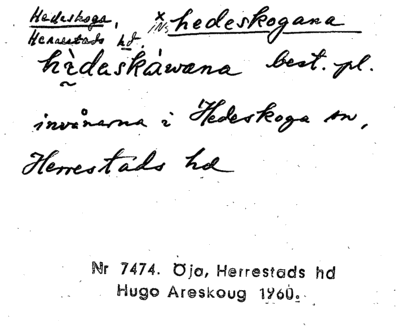 Hedeskoga,
Herrestads hd.
hedeskogana
hı̀daskáwana best. pl.
invånarna i Hedeskoga sn,
Herrestads hd
Nr 7474. Öja, Herrestads hd
Hugo Areskoug 1960.